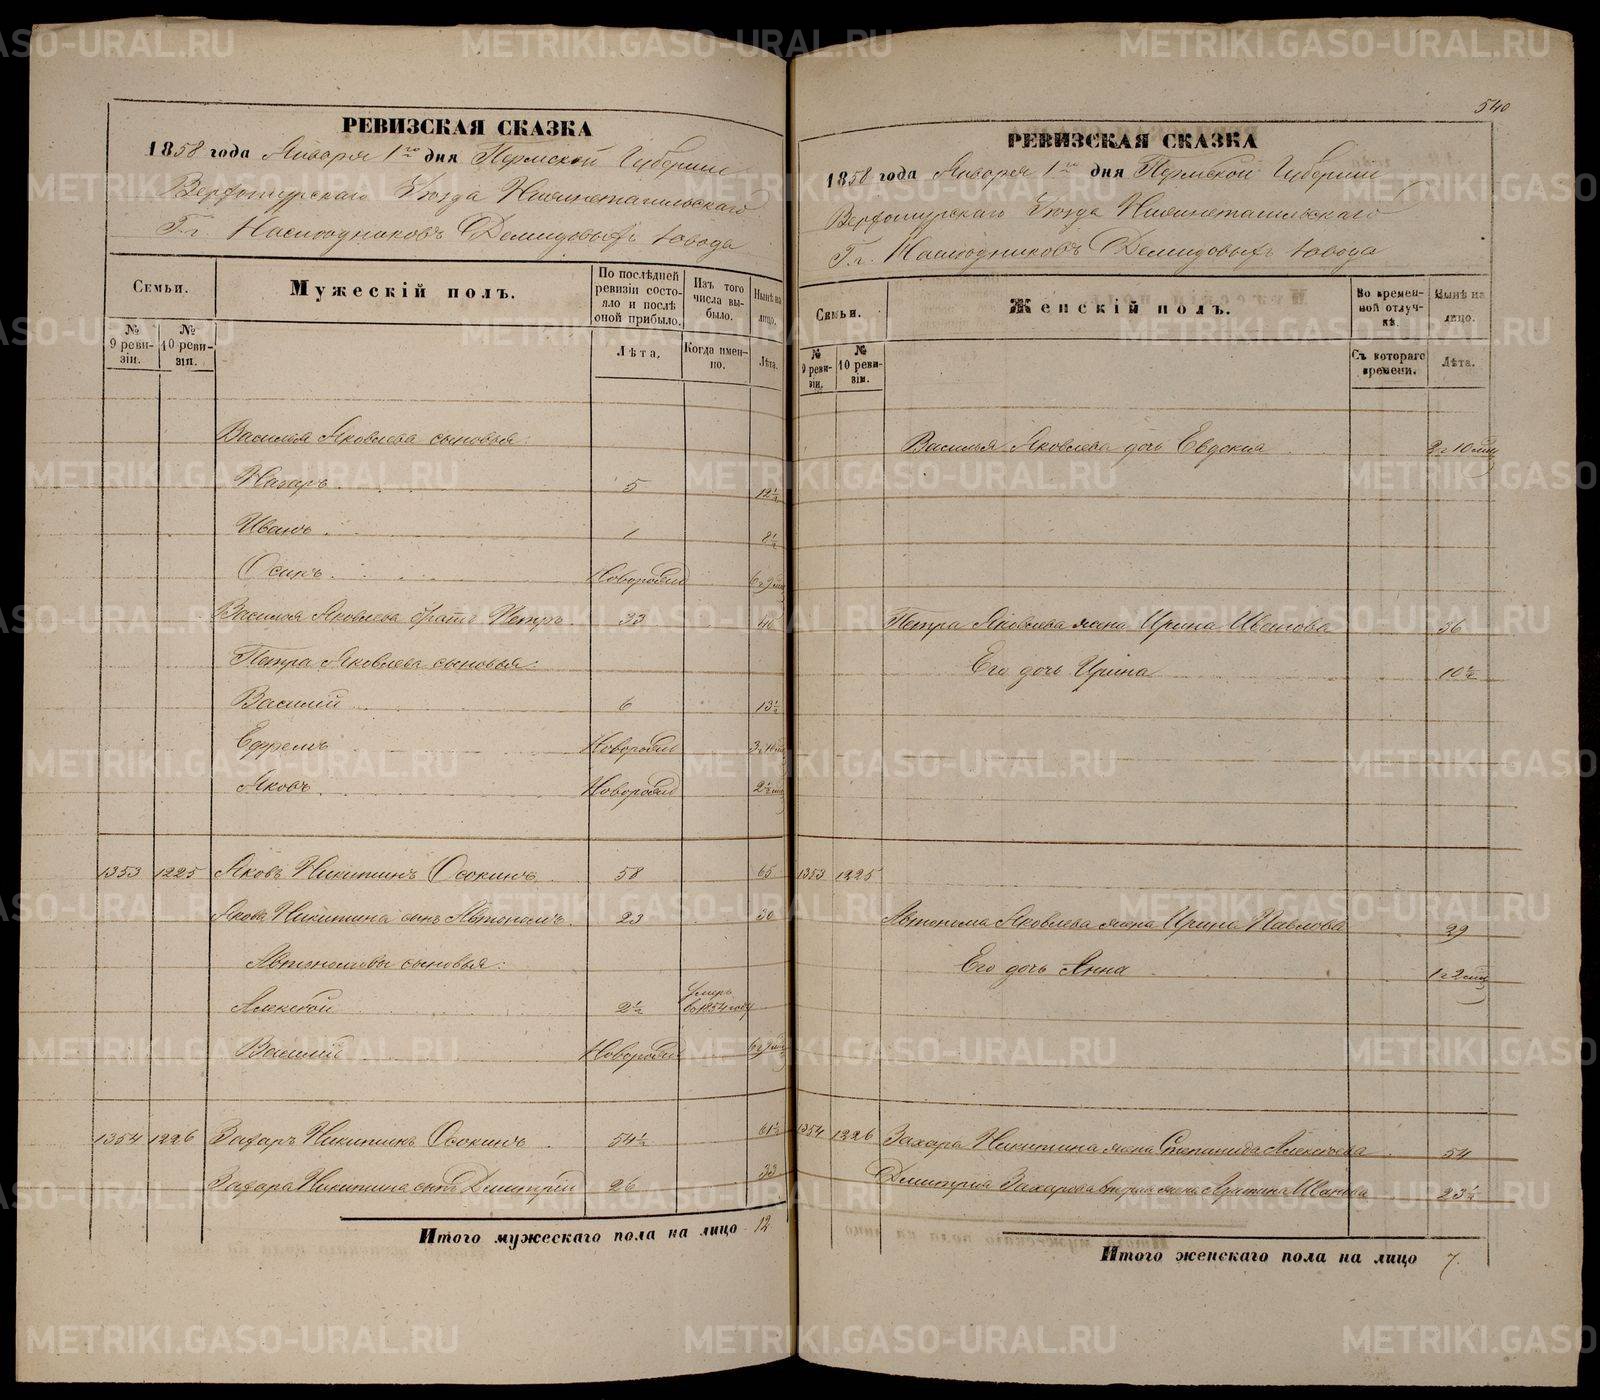 540
РЕВИЗСКАЯ СКАЗКА
1858 года Января 1го дня Пермской Губернии
Верхотурскаго Уѣзда Нижнетагильскаго
Г.г. Наслѣдниковъ Демидовыхъ завода
Семьи.
Мужескій полъ.
По послѣдней ревизіи состояло и послѣ оной прибыло.
Изъ того числа выбыло.
Нынѣ на лицо.
№ 9 ревизіи.
№ 10 ревизіи.
Лѣта.
Когда именно.
Лѣта.
Василья Яковлева сыновья:
Назаръ 5 12½
Иванъ 1 8½
Осипъ Новорожд 6 г 9 мѣц
Василья Яковлева братъ Петръ 33 40
Петра Яковлева сыновья:
Василій 6 13½
Ефремъ Новорожд
Яковъ Новорожд 2½ мѣц
1353 1225 Яковъ Никитинъ Осокинъ 58 65
Якова Никитина сынъ Автономъ 23 30
Автономовы сыновья:
Алексѣй 2½ Умеръ въ 1854 году
Василій Новорожд 6 г 9 мѣц
1354 1226 Захаръ Никитинъ Осокинъ 54½ 61½
Захара Никитина сынъ Дмитрій 26 33
Итого мужескаго пола на лицо 12
РЕВИЗСКАЯ СКАЗКА
1858 года Января 1го дня Пермской Губерніи
Верхотурскаго Уѣзда Нижнетагильскаго
Г.г. Наслѣдниковъ Демидовыхъ завода
Семьи.
Женскій полъ.
Во временной отлучкѣ.
Нынѣ на лицо.
№ 9 ревизіи.
№ 10 ревизіи.
Съ котораго времени.
Лѣта.
Василья Яковлева дочь Евдокия 2 г 10 мѣц
Петра Яковлева жена Ирина Иванова 36
Его дочь Ирина 10½
1353 1225
Автонома Яковлева жена Ирина Павлова 29
Его дочь Анна 1 г 2 мѣц
1354 1226 Захара Никитина жена Степанида Алексѣева 54
Дмитрия Захарова вторая жена Иванова 23½
Итого женскаго пола на лицо 7.
METRIKI.GASO-URAL.RU